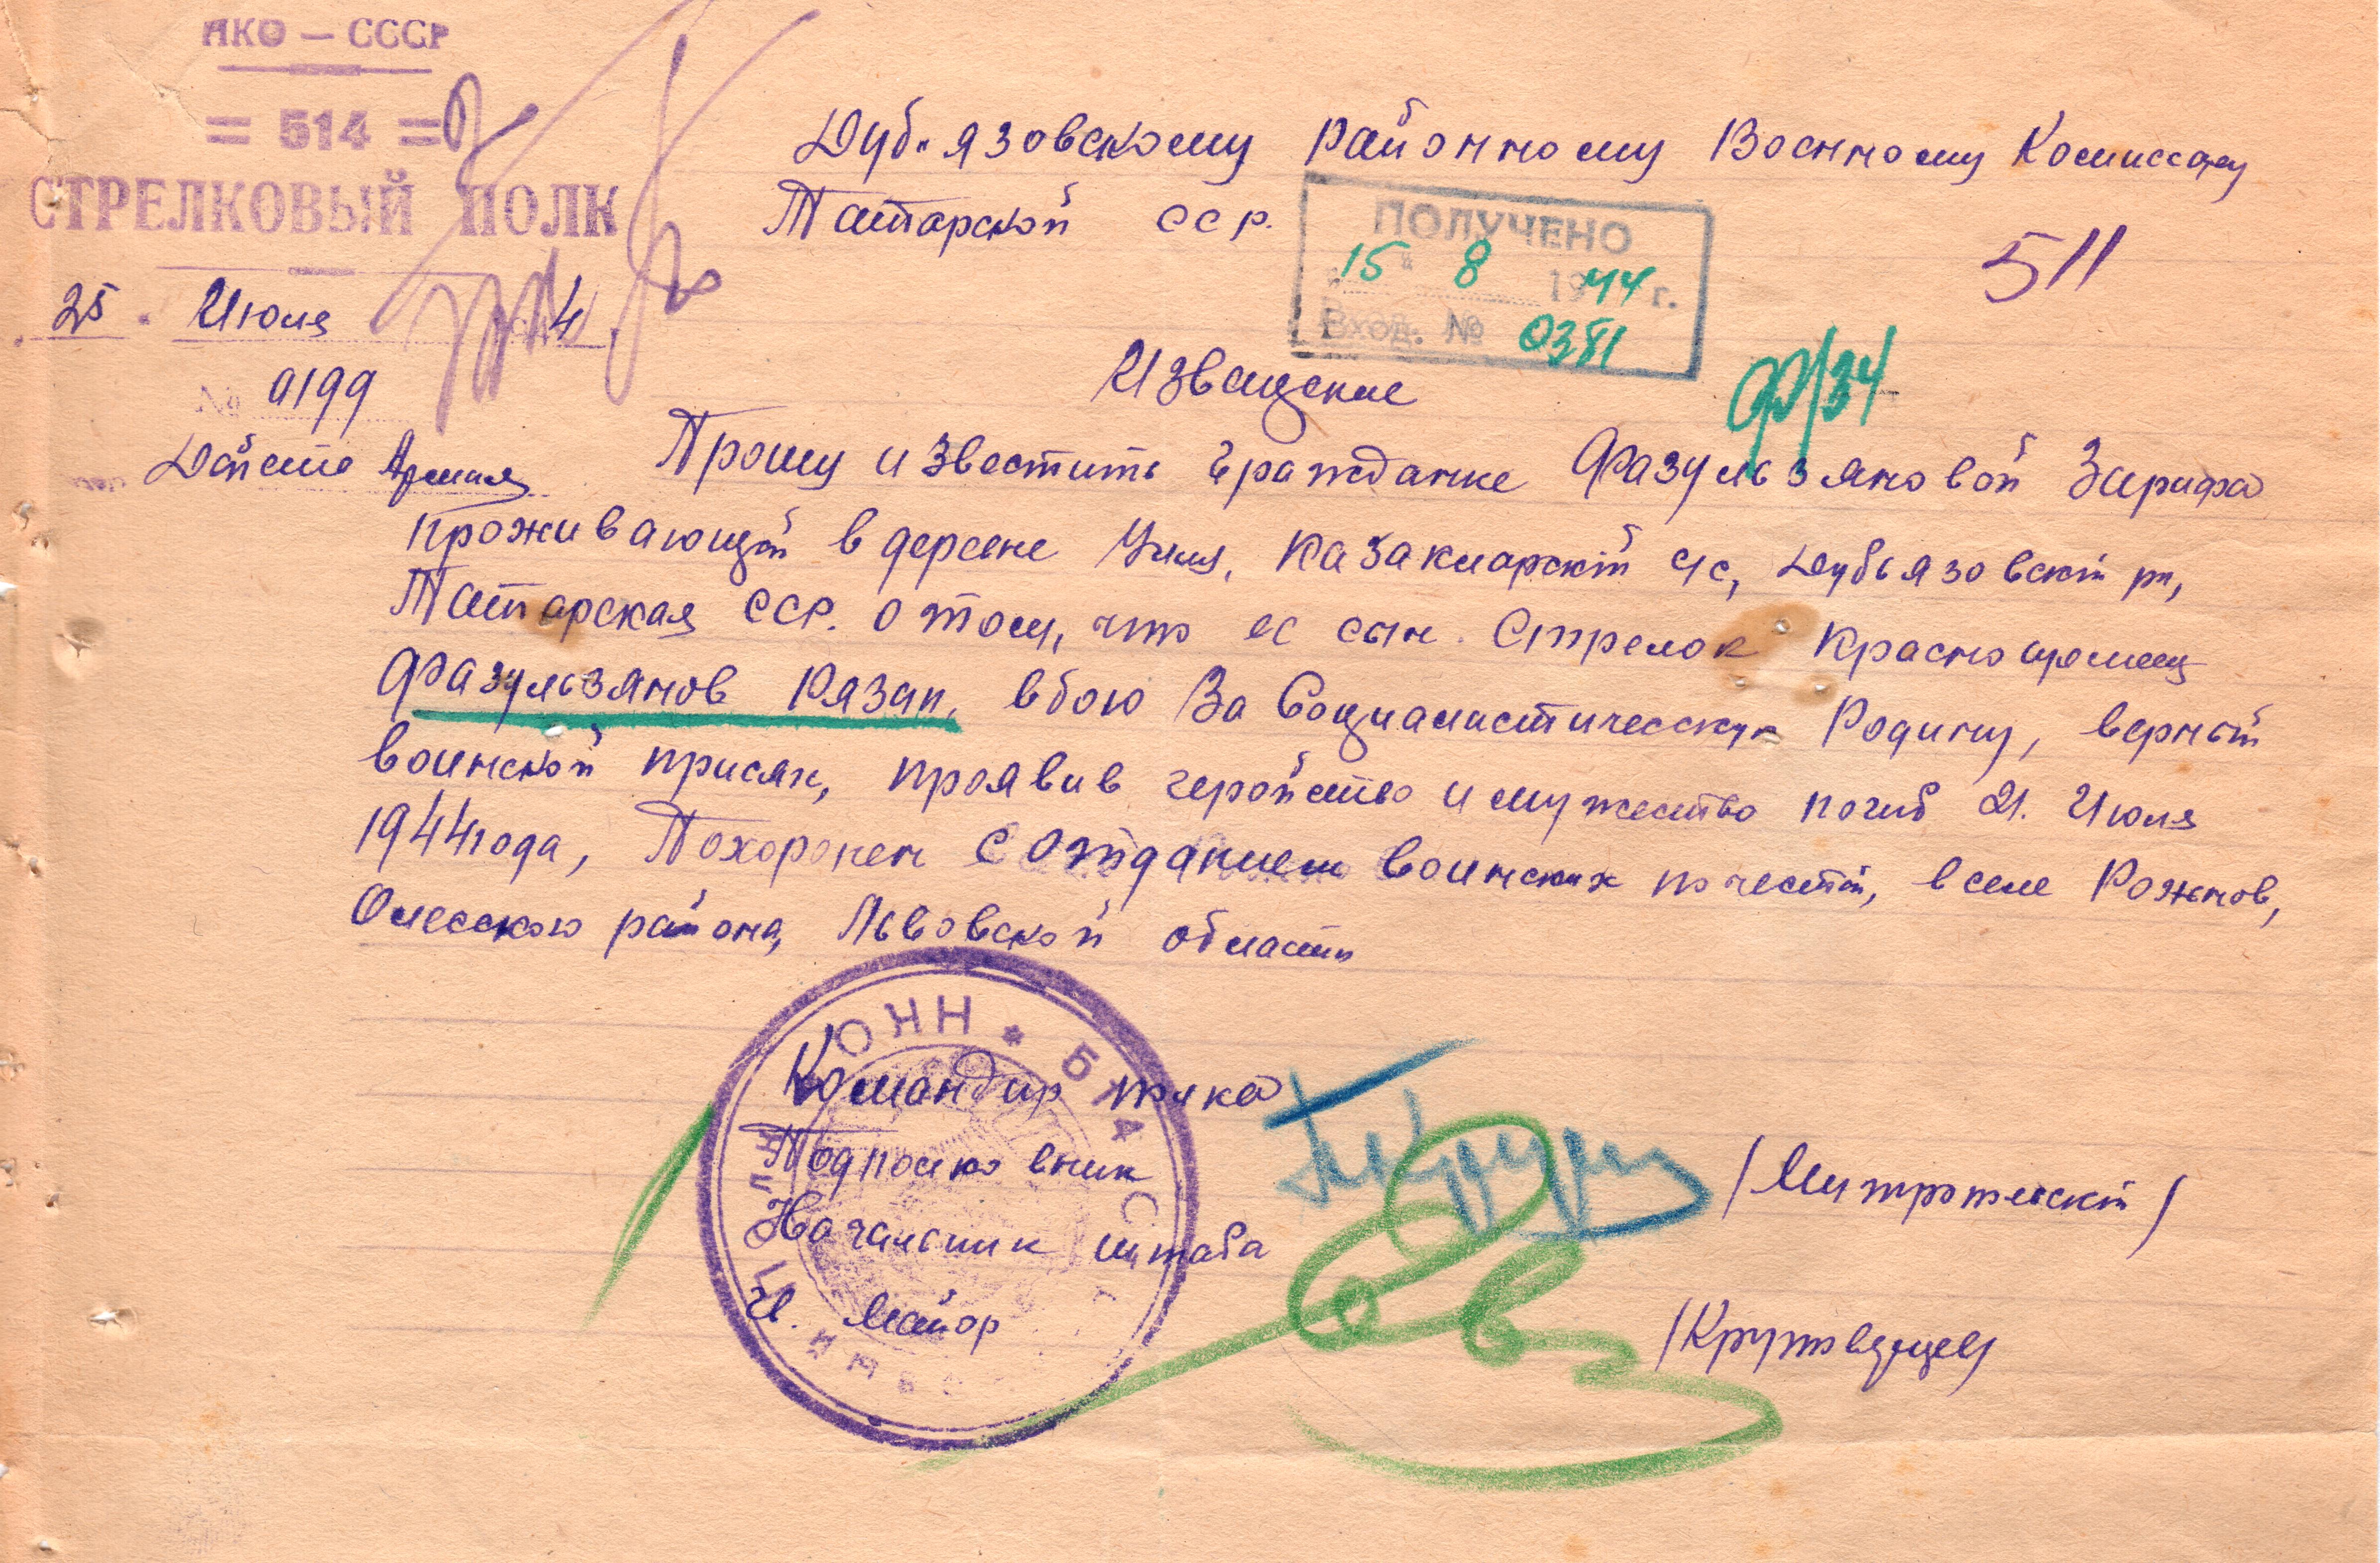 НКО — СССР
= 514 =
СТРЕЛКОВЫЙ ПОЛК
25. Июля 4
№ 0199
Действ Армия
Дуб-язовскому Районному Военному Комиссару
Татарской ССР.
ПОЛУЧЕНО
"15" 8 1944 г.
Вход. № 0381
511
Извещение
Ф/34
Прошу известить Гражданке Фазульзяновой Зарифа
проживающей в деревне Казакларский с/с, Дубьязовский рн,
Татарская ССР. о том, что ее сын Стрелок Красноармеец
Фазульзянов Рязап, в бою За Социалистическую Родину, верный
воинской присяги, проявив геройство и мужество погиб 21. Июля
1944 года, Похоронен с отданием воинских почестей, в селе Рожнов,
Олесского района, Львовской области
Командир полка
Подполковник /
Начальник штаба
Майор